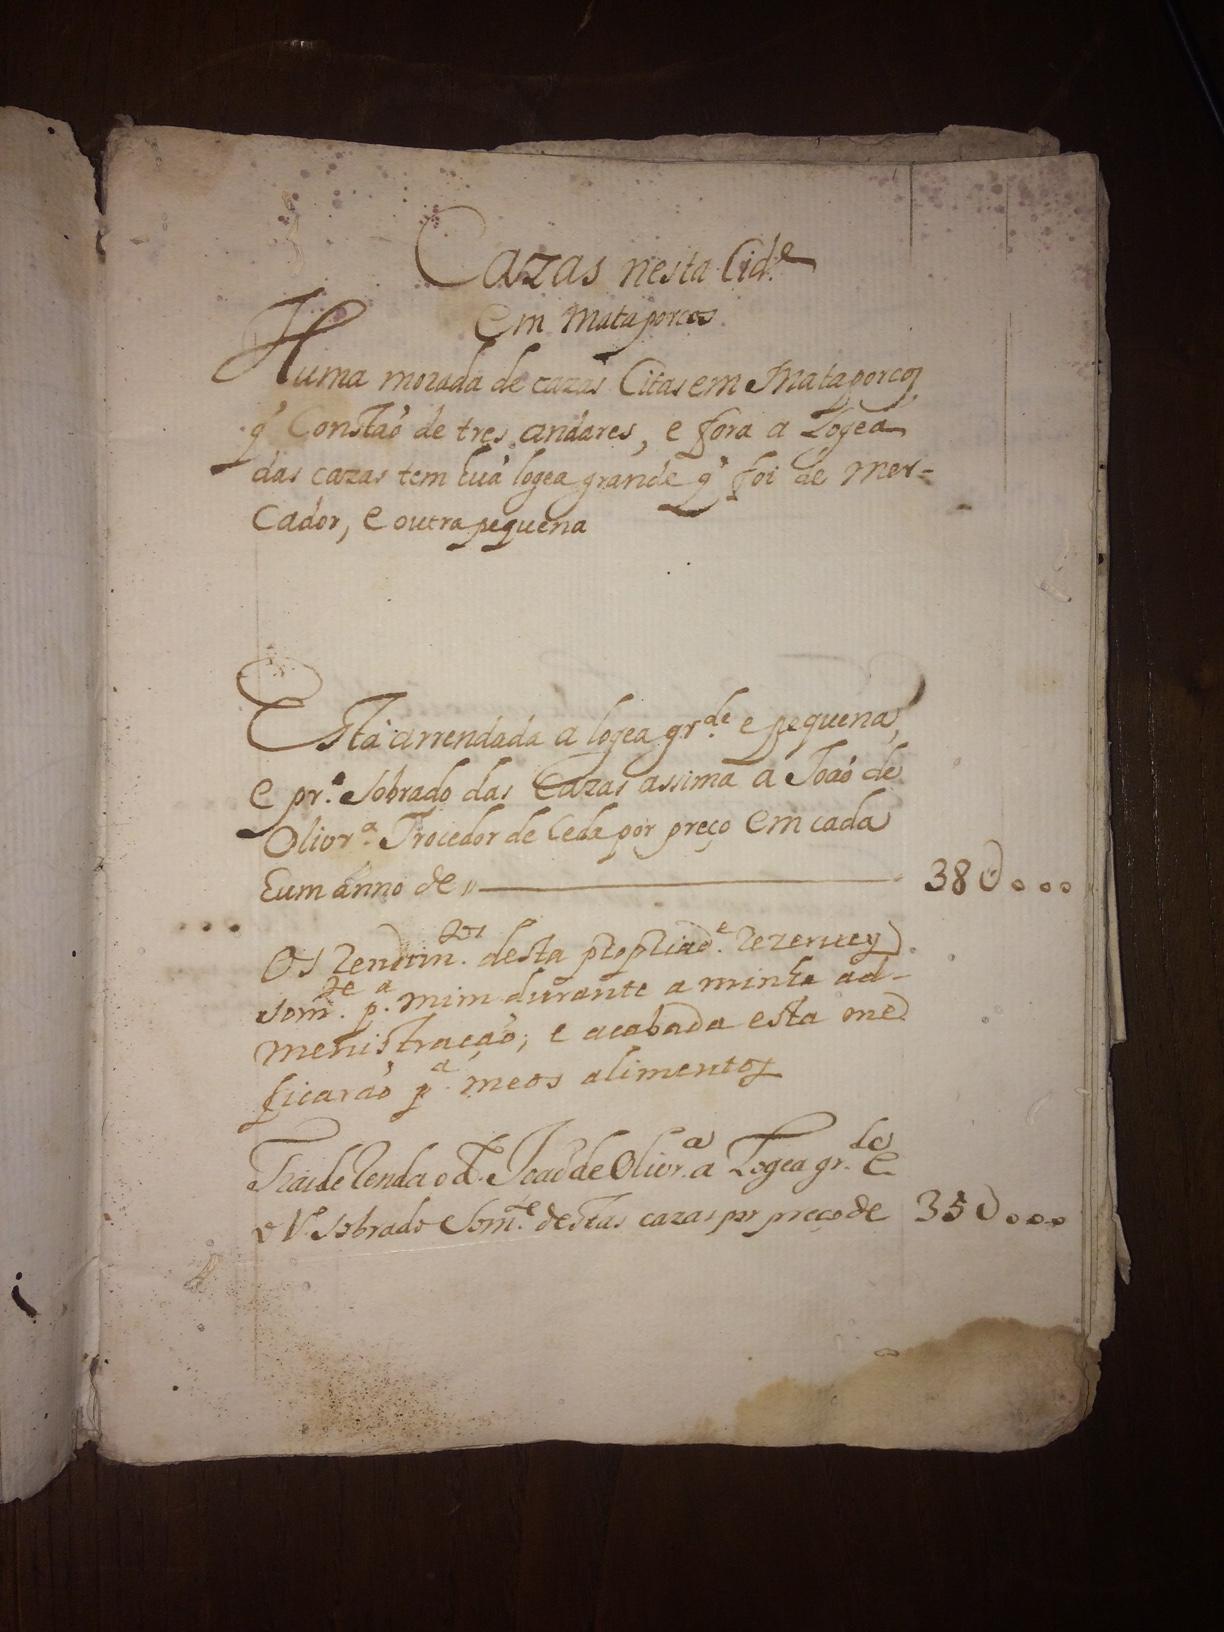 Cazas nesta Cid.e
Em Mataporcos.
Huma morada de cazas Citas em Mataporcos,
q' Constaõ de tres andares, e fora a Logea
das cazas tem huã logea grande q' foi de Mer-
Cador, e outra pequena
Està arrendada a logea gr.de e pequena,
e pr.o Sobrado das Cazas assima a Joaõ de
Olivr.a Trocedor de Ceda por preço Em cada
hum anno de, 38U000
Os rendim.tos desta propriad.e rezervey
som.te p.a mim durante a minha ad-
menistraçaõ; e acabada esta me
ficaraõ p.a meos alimentos
Tras de renda o d.o Joaõ de Olivr.a a Logea gr.de e
o sobrado Som.te destas cazas por preço de 35U000